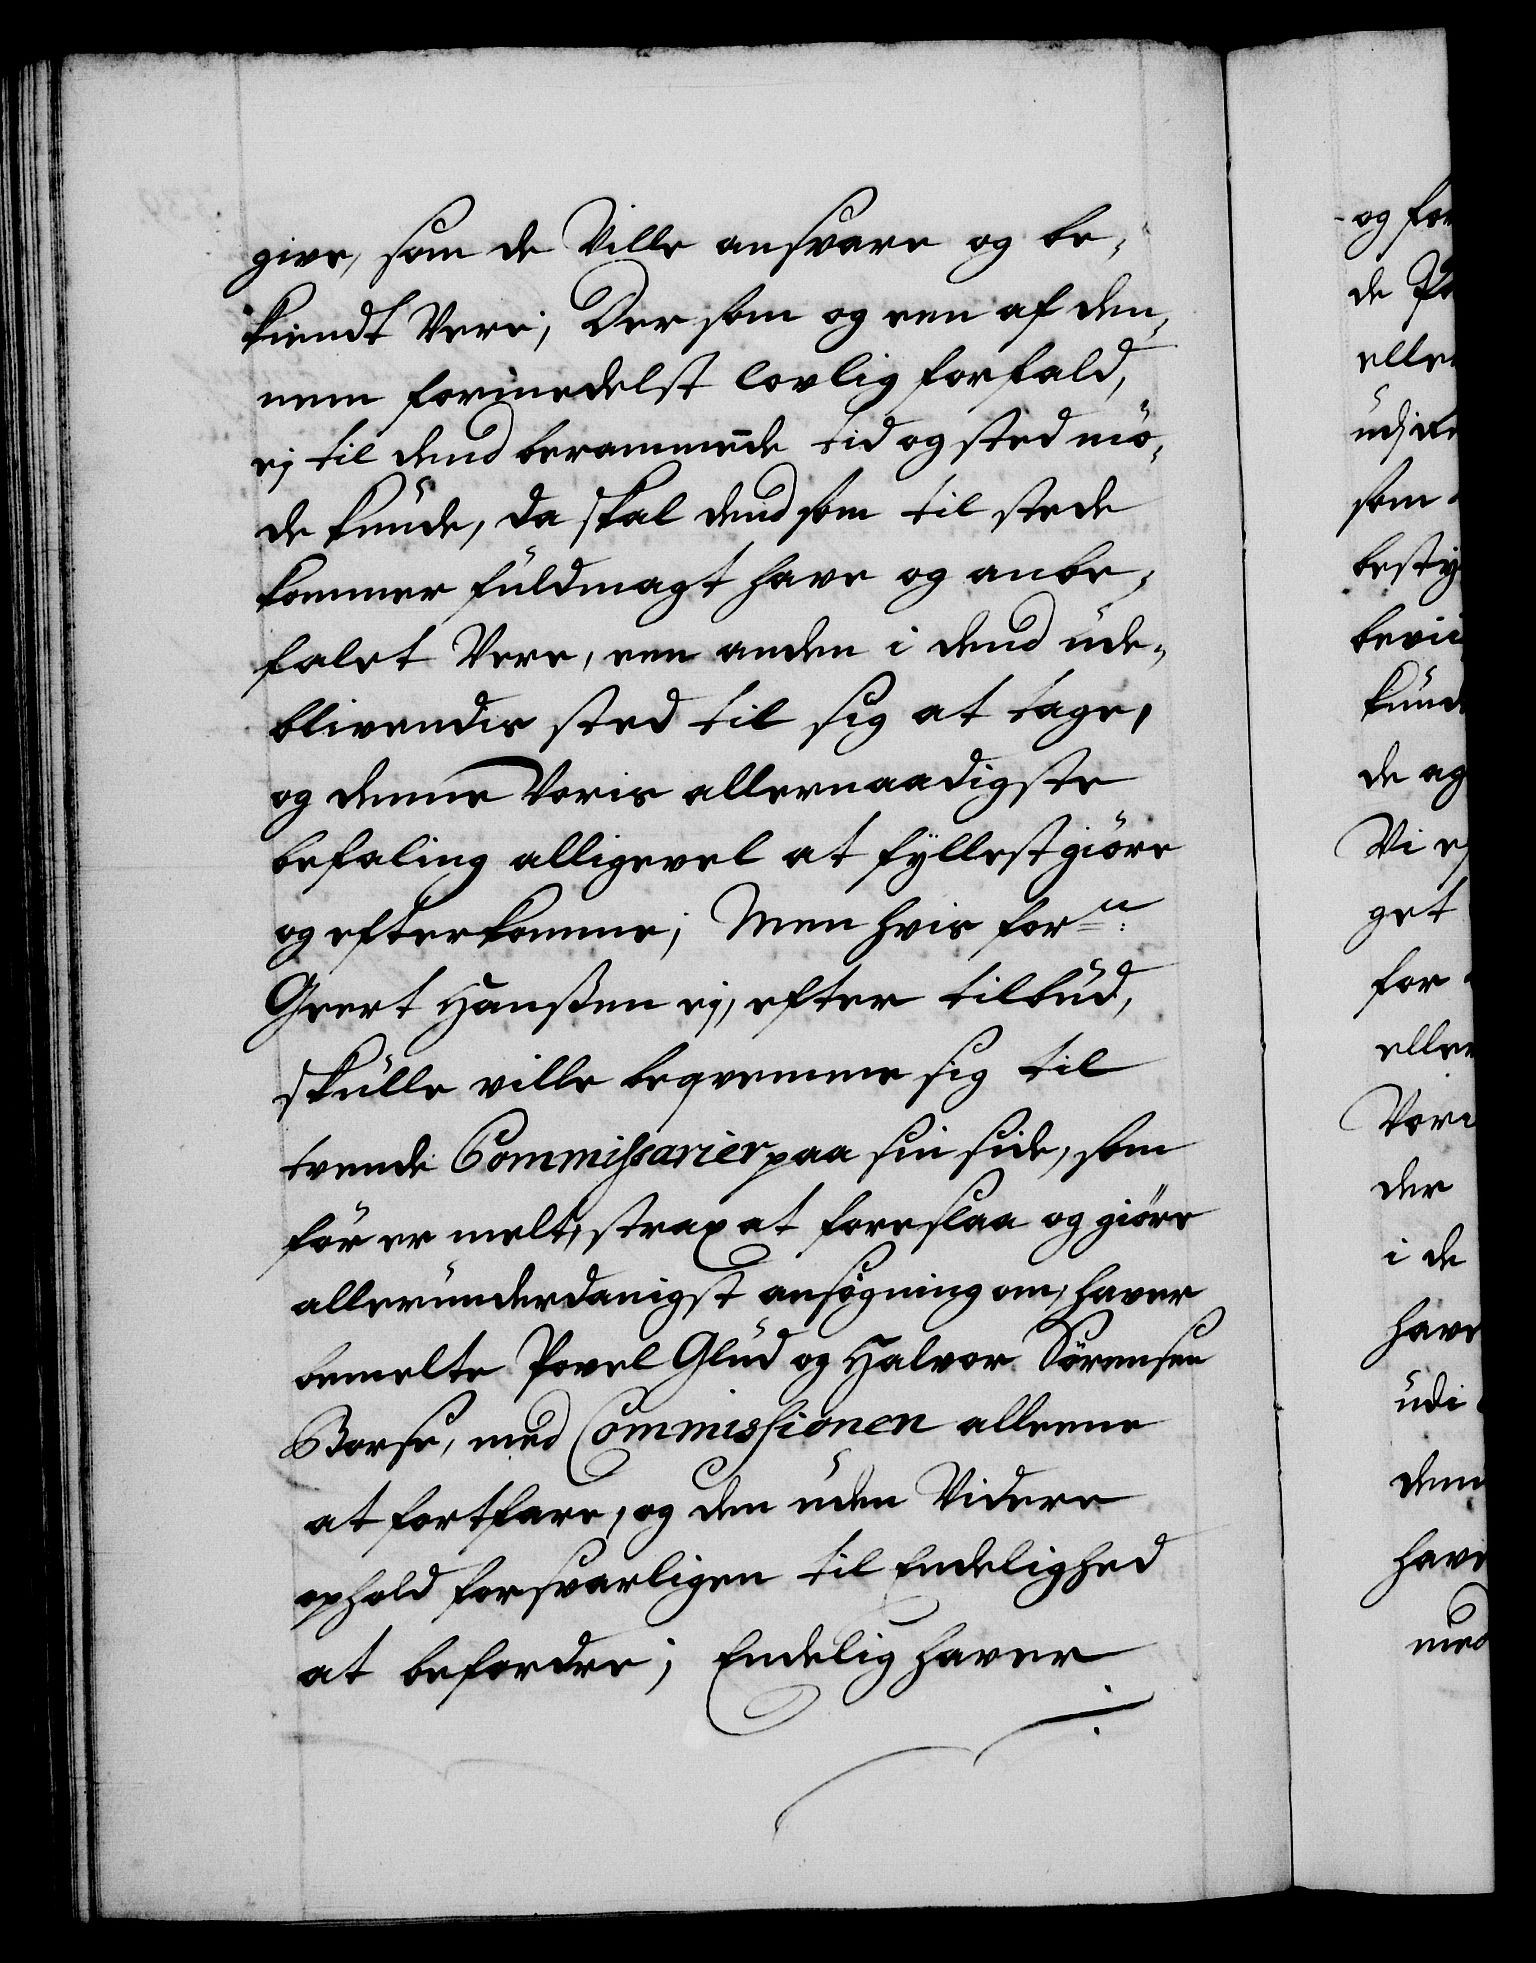 give, som de Ville ansvare og be-
kiendt Vere; Der som og een af den-
nem formedelst lovlig forfald,
ej til dend berammede tid og sted mö-
de kunde, da skal dend som til stede
kommer fuldmagt have og anbe-
falet Vere, een anden i dend ude-
blivendis sted til sig at tage,
og denne Voris allernaadigste
befaling alligevel at fyllestgiöre
og efterkomme; Men hvis forn:
Geert Hanßen ej, efter tilbud,
skulle ville beqvemme sig til
tvende Commissarier paa sin side, som
för er melt, strax at foreslaa og giöre
allerunderdanigst ansögning om, haver
bemelte Povel Glud og Halvor Sörensen
Borse, med Commissionen alleene
at fortfare, og den uden Videre
ophold forsvarligen til Endelighed
at befordre; Endelig haver
og for
de
eller
som
kund
de
Vi
get
for
eller
der
i de
have
udi
dem
have
med